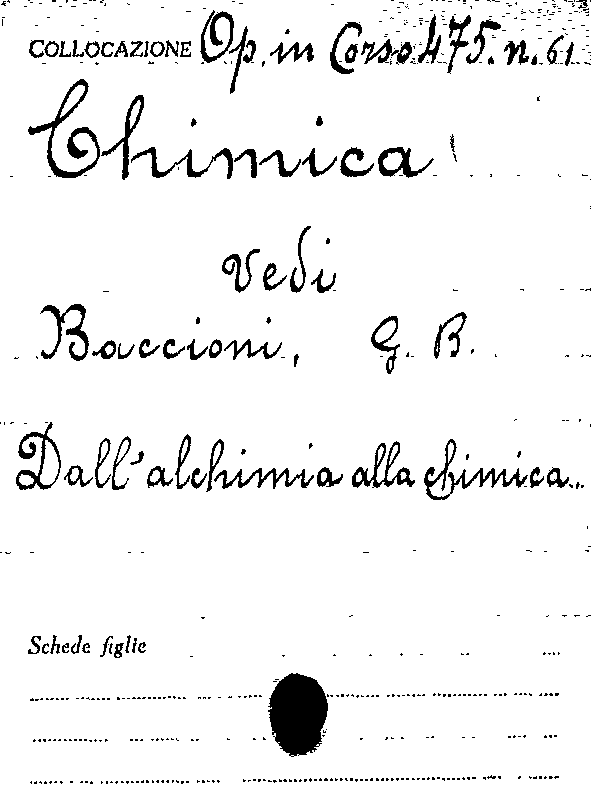 COLLOCAZIONE Op. in Corso 475. n. 61
Chimica
vedi
Baccioni, G. B.
Dall'alchimia alla chimica..
Schede figlie